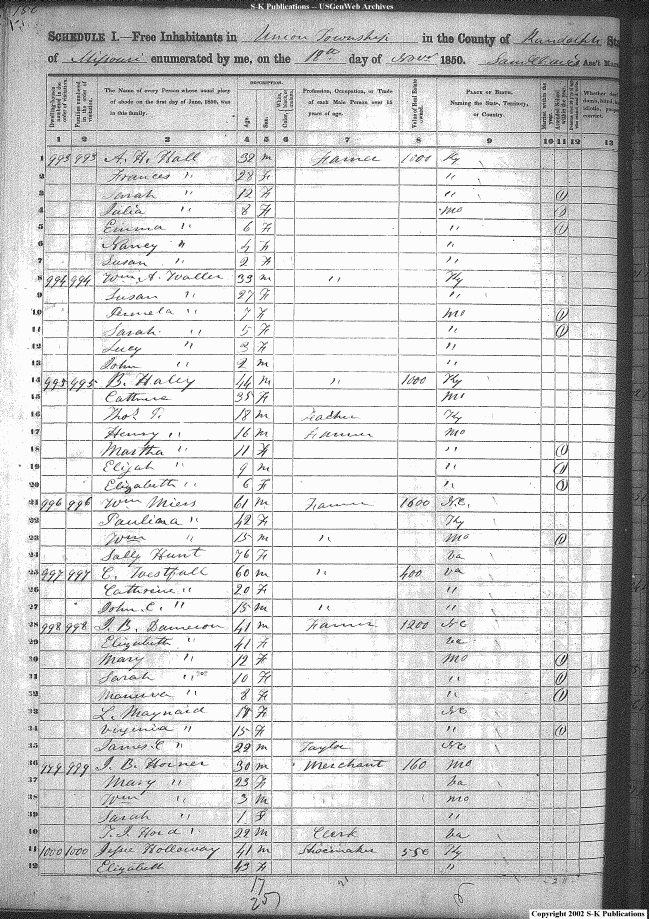 S-K Publications -- USGenWeb Archives
SCHEDULE I.—Free Inhabitants in Union Township in the County of Randolph
of Missouri enumerated by me, on the 18th day of Nov 1850.
DESCRIPTION.
Dwelling-houses numbered in the order of visitation.
Families numbered in the order of visitation.
The Name of every Person whose usual place of abode on the first day of June, 1850, was in this family.
Age. Sex. Color
Profession, Occupation, or Trade of each Male Person over 15 years of age.
Value of Real Estate owned.
PLACE OF BIRTH. Naming the State, Territory, or Country.
Married within the year.
1 2 3 4 5 6 7 8 9 10 11 12 13
1 993 993 A. H. Hall 38 m Farmer 1000 Ky
2 Frances " 28 F "
3 Sarah " 12 F " 1
4 Julia " 8 F Mo 1
5 Emma " 6 F " 1
6 Nancy " 4 F "
7 Susan " 2 F "
8 994 994 Wm A. Waller 39 m " Ky
9 Susan " 27 F "
10 Permela " 7 F Mo 1
11 Sarah " 5 F " 1
12 Lucy " 3 F "
13 John " 2 m "
14 995 995 B. Haley 44 m " 1000 Ky
15 35 F Mo
16 Thos T. 18 m Teacher Ky
17 Henry " 16 m Farmer Mo
18 Martha " 11 F " 1
19 Elijah " 9 m " 1
20 Elizabeth " 6 F " 1
21 996 996 Wm Miers 61 m Farmer 1600 N.C.
22 Paulina " 42 F Ky
23 Wm " 15 m " Mo 1
24 Sally Hunt 76 F Va
25 997 997 C. Westfall 60 m " 400 Va
26 Catherine " 20 F "
27 John C. " 15 m " "
28 998 998 J. B. Dameron 41 m Farmer 1200 NC
29 Elizabeth " 41 F Va
30 Mary " 12 F Mo 1
31 Sarah " 10 F " 1
32 Manerva " 8 F " 1
33 L. Maynard F NC
34 Virginia " 15 F " 1
35 James C " 22 m Taylor NC
36 999 999 J. B. Horner 30 m Merchant 160 Mo
37 Mary " 23 F Va
38 Wm " 3 m Mo
39 Sarah " 1 F "
40 T. J. Hord " 22 m Clerk Va
41 1000 1000 Jesse Holloway 41 m Shoemaker 550 Ky
42 Elizabeth 43 F "
17
25
6
Copyright 2002 S-K Publications